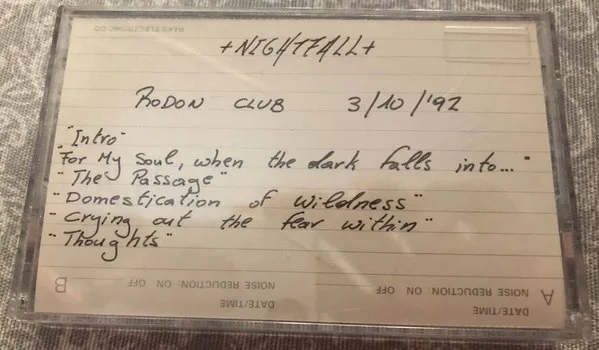 ELECTRONIC CO
+NIGHTFALL+
RODON CLUB 3/10/'92
"Intro"
For My Soul, when the dark falls into..."
"The Passage"
"Domestication of wildness"
"Crying out the fear within"
"Thoughts"
DATE/TIME DATE/TIME
A NOISE REDUCTION: ON OFF NOISE REDUCTION: ON OFF B